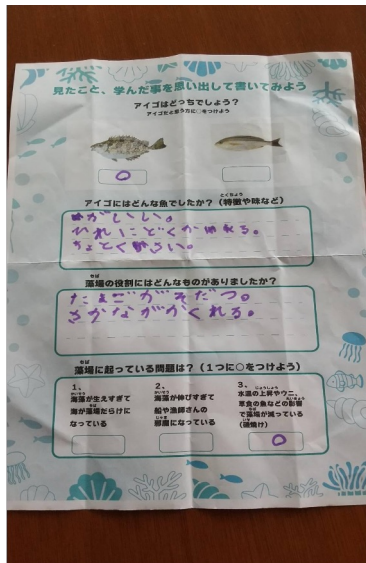 見たこと、学んだ事を思い出して書いてみよう
アイゴはどっちでしょう？
アイゴだと思う方に○をつけよう
○
とくちょう
アイゴにはどんな魚でしたか？（特徴や味など）
ひれにどくが
もば
藻場の役割にはどんなものがありましたか？
たまごがそだつ。
さかながかくれる。
もば
藻場に起っている問題は？（１つに○をつけよう）
1、
かいそう
海藻が生えすぎて
海が藻場だらけに
なっている
2、
かいそう
海藻が伸びすぎて
船や漁師さんの
じゃま
邪魔になっている
3、
じょうしょう
水温の上昇やウニ、
えいきょう
草食の魚などの影響
もば
で藻場が減っている
いそや
（磯焼け）
○